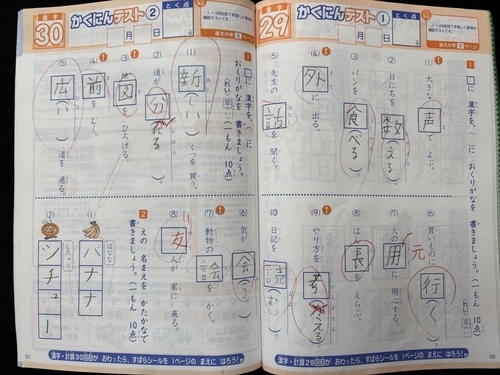 漢字
29
かくにんテスト①
とく点
月
日
答えの本
1 □に 漢字を、( )に おくりがなを 書きましょう。
(一もん 10点)
(れい)
(1) 大きな 声で よぶ。
(2) 日にちを 数(える)。
(3) パンを 食(べる)。
(4) 外に 出る。
(5) 先生の 話を 聞く。
(6) 買いものに 行(く)。
(7) 火の 用に 用心する。
元
(8) はん 長を えらぶ。
(9) やり方を 考える。
(10) 日記を 読(む)。
漢字・計算29回目が おわったら、すばらシールを 1ページの まえに はろう!
漢字
30
かくにんテスト②
とく点
月
日
答えの本
1 □に 漢字を、( )に おくりがなを 書きましょう。
(一もん 10点)
(れい)
(1) 新(しい) くつを 買う。
(2) 道が 分(れる)。
(3) 地図を ひろげる。
(4) 前を むく。
(5) 広(い) 道を 通る。
(6) 気が 会(う)。
(7) 動物の 絵を かく。
(8) 友人が 家に 来る。
2 えの 名まえを かたかなで 書きましょう。
(一もん 10点)
(1) バナナ
(2) シチュー
漢字・計算30回目が おわったら、すばらシールを 1ページの まえに はろう!